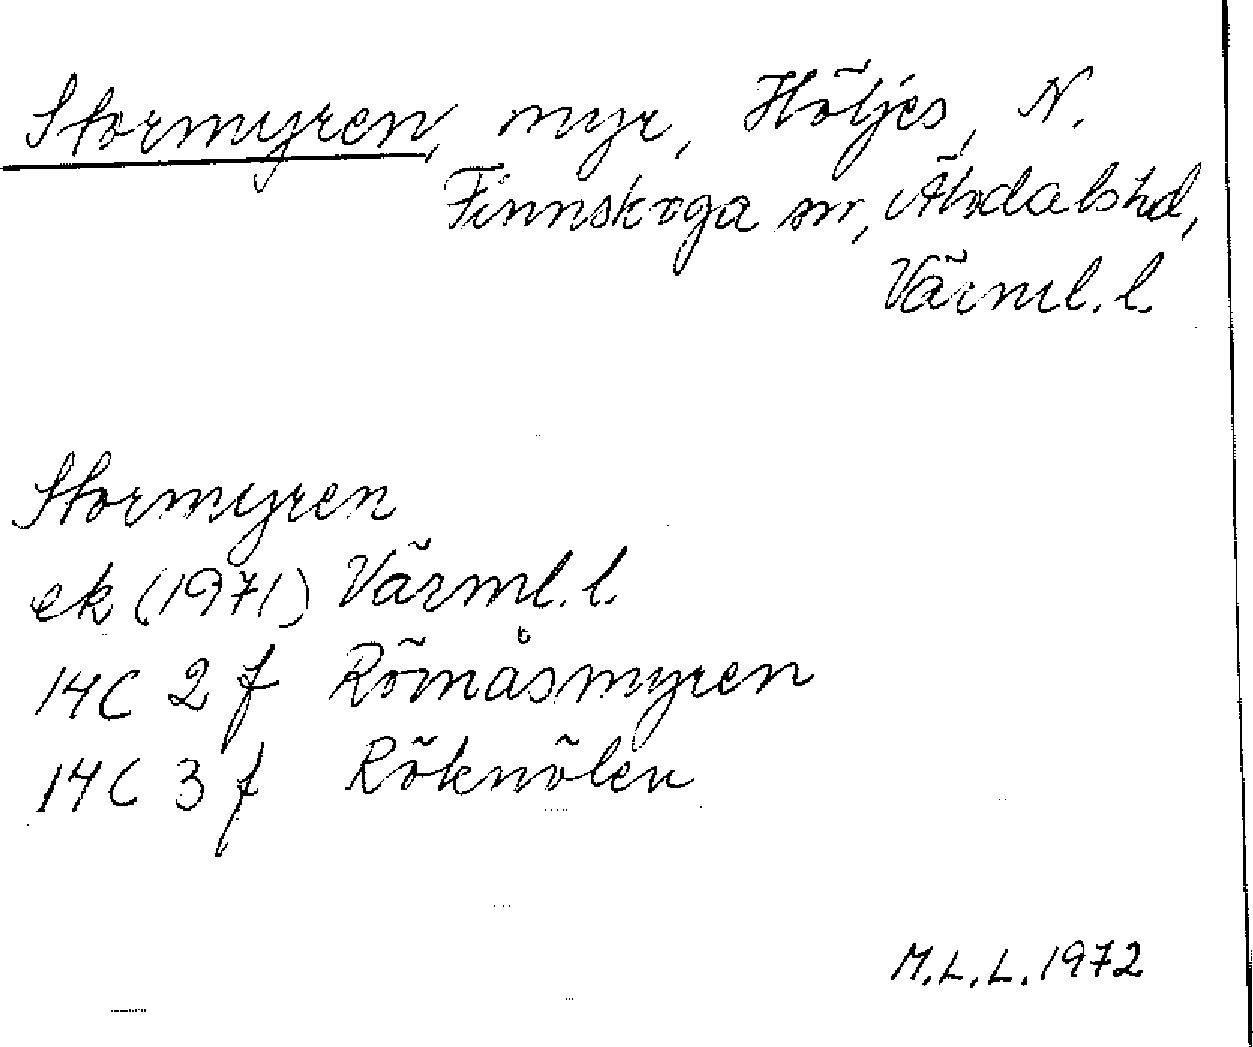 Stormyren, myr, Höljes, N.
Finnskoga sn, Älvdalshd,
Värml. l.
Stormyren
ek (1971) Värml. l.
14C 2 f Römåsmyren
14C 3 f Röknölen
M.L.L. 1972